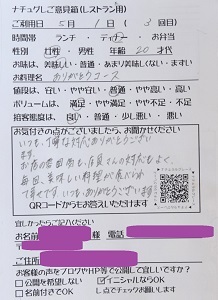 ナチュグレご意見箱(レストラン用)
ご利用日 5月 1日 ( 3 回目)
時間帯 ランチ ・ ディナー ・ お弁当
男性 ・ 女性 年齢 20 才代
お味は、美味しい・普通・あまり美味しくない・まずい
お料理名 ありがとうコース
値段は、安い・やや安い・普通・やや高い・高い
ボリュームは 満足 ・やや満足・やや不足・不足
接客態度は、良い・普通・少し悪い・悪い
お気付きの点がございましたら、お聞かせください
いつも、丁寧な対応ありがとうござい
ます。
お店の雰囲気も、店員さんの対応もよく、
毎回、美味しい料理が食べられ
て幸せです。いつもありがとうございます
QRコードからもお答えいただけます
宜しかったらご記入ください
お名前 様 電話
ご住所
お客様の声をブログやHP等で公開して宜しいですか?
□公開を希望しない ☑イニシャルならOK
□名前付きでOK レ点でチェックお願いします